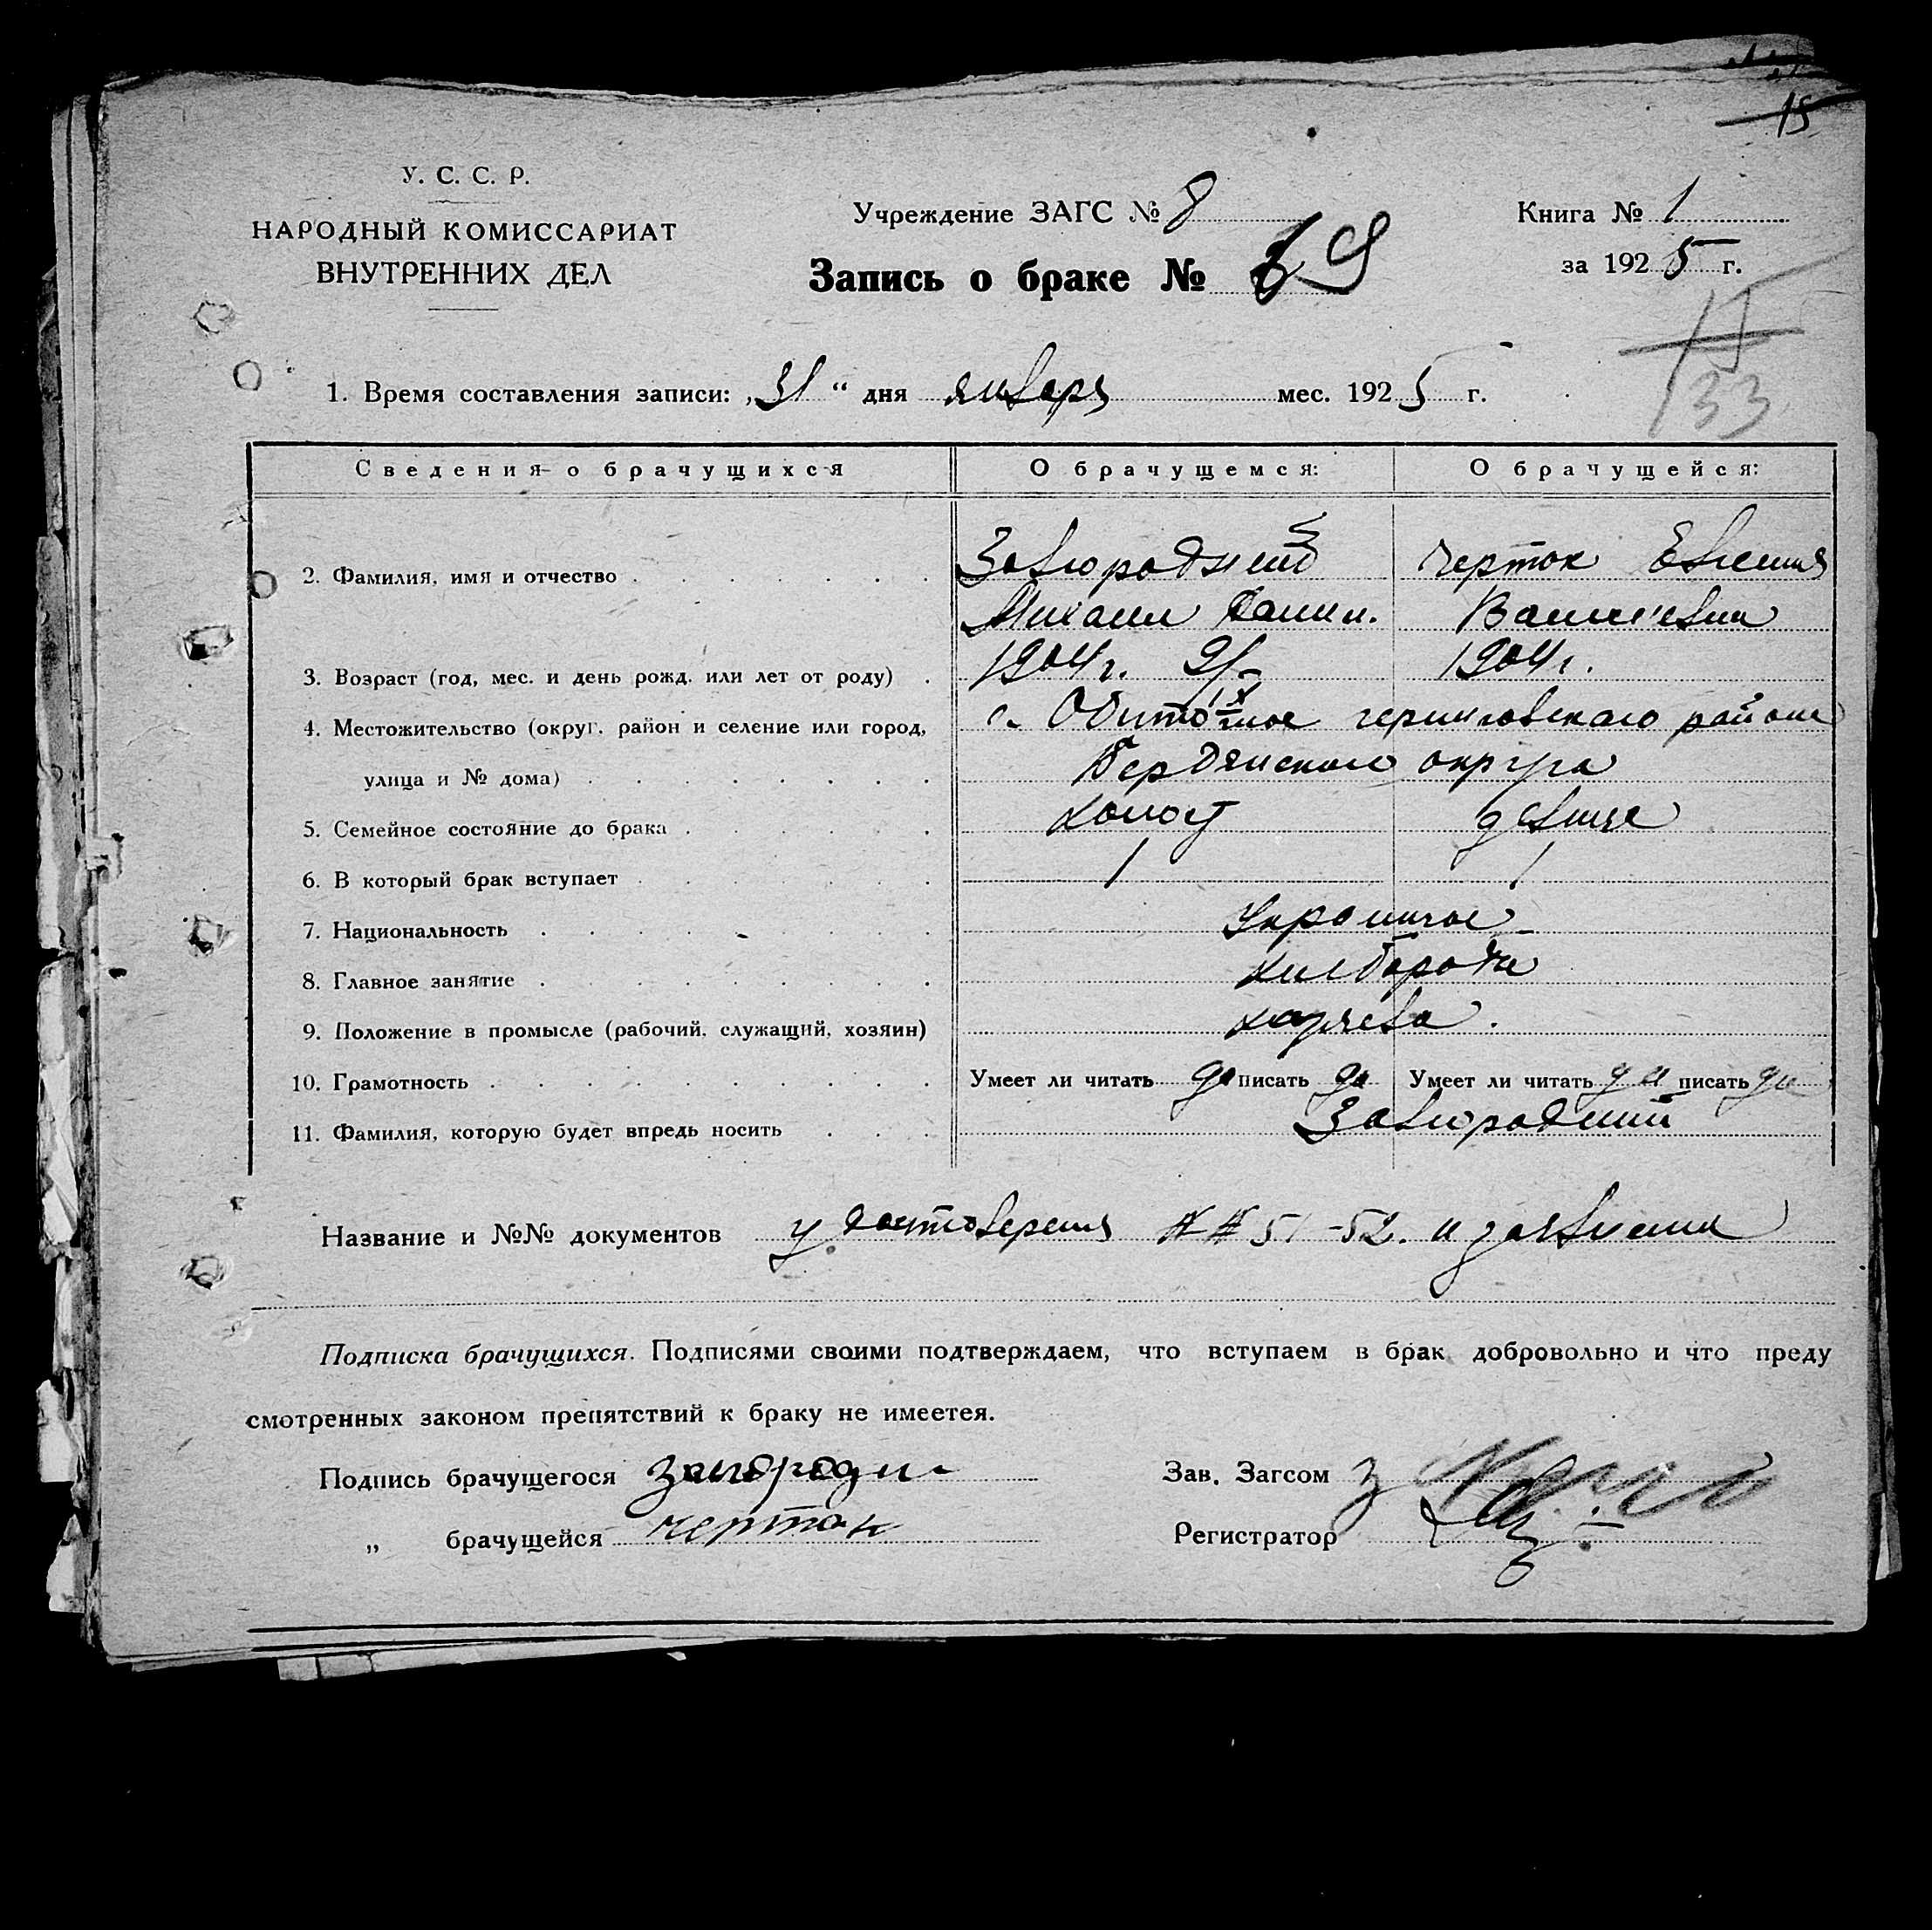 15
У. С. С. Р.
НАРОДНЫЙ КОМИССАРИАТ
ВНУТРЕННИХ ДЕЛ
Учреждение ЗАГС № 8
Запись о браке № 9
Книга № 1
за 1925 г.
15
133
1. Время составления записи: „31“ дня января мес. 1925 г.
Сведения о брачущихся О брачущемся: О брачущейся:
2. Фамилия, имя и отчество Завгородний Черток Евгения
Михаил Данил.
3. Возраст (год, мес. и день рожд. или лет от роду) 1904г. 1904г.
4. Местожительство (округ. район и селение или город, с. Обиточное черниговского района
улица и № дома) Бердянского округа
5. Семейное состояние до брака холост девица
6. В который брак вступает 1 1
7. Национальность
8. Главное занятие хлебороды
9. Положение в промысле (рабочий, служащий, хозяин) хозяева.
10. Грамотность Умеет ли читать да писать да Умеет ли читать да писать да
11. Фамилия, которую будет впредь носить Завгородний
Название и №№ документов удостоверения №№ 51-52. и заявления
Подписка брачущихся. Подписями своими подтверждаем, что вступаем в брак добровольно и что преду
смотренных законом препятствий к браку не имеетея.
Подпись брачущегося Зав. Загсом
„ брачущейся Черток Регистратор